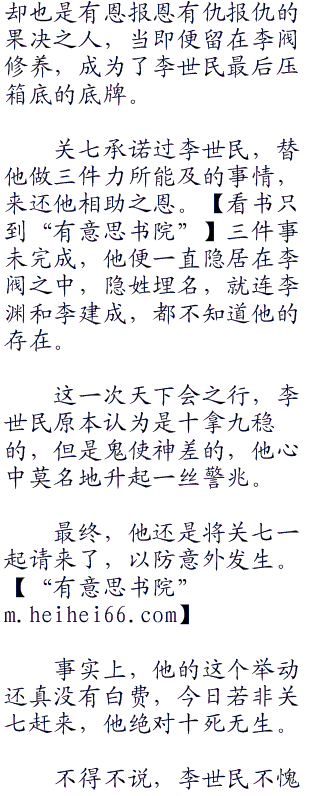 却也是有恩报恩有仇报仇的
果决之人，当即便留在李阀
修养，成为了李世民最后压
箱底的底牌。
关七承诺过李世民，替
他做三件力所能及的事情，
来还他相助之恩。【看书只
到“有意思书院”】三件事
未完成，他便一直隐居在李
阀之中，隐姓埋名，就连李
渊和李建成，都不知道他的
存在。
这一次天下会之行，李
世民原本认为是十拿九稳
的，但是鬼使神差的，他心
中莫名地升起一丝警兆。
最终，他还是将关七一
起请来了，以防意外发生。
【“有意思书院”
m.heihei66.com】
事实上，他的这个举动
还真没有白费，今日若非关
七赶来，他绝对十死无生。
不得不说，李世民不愧